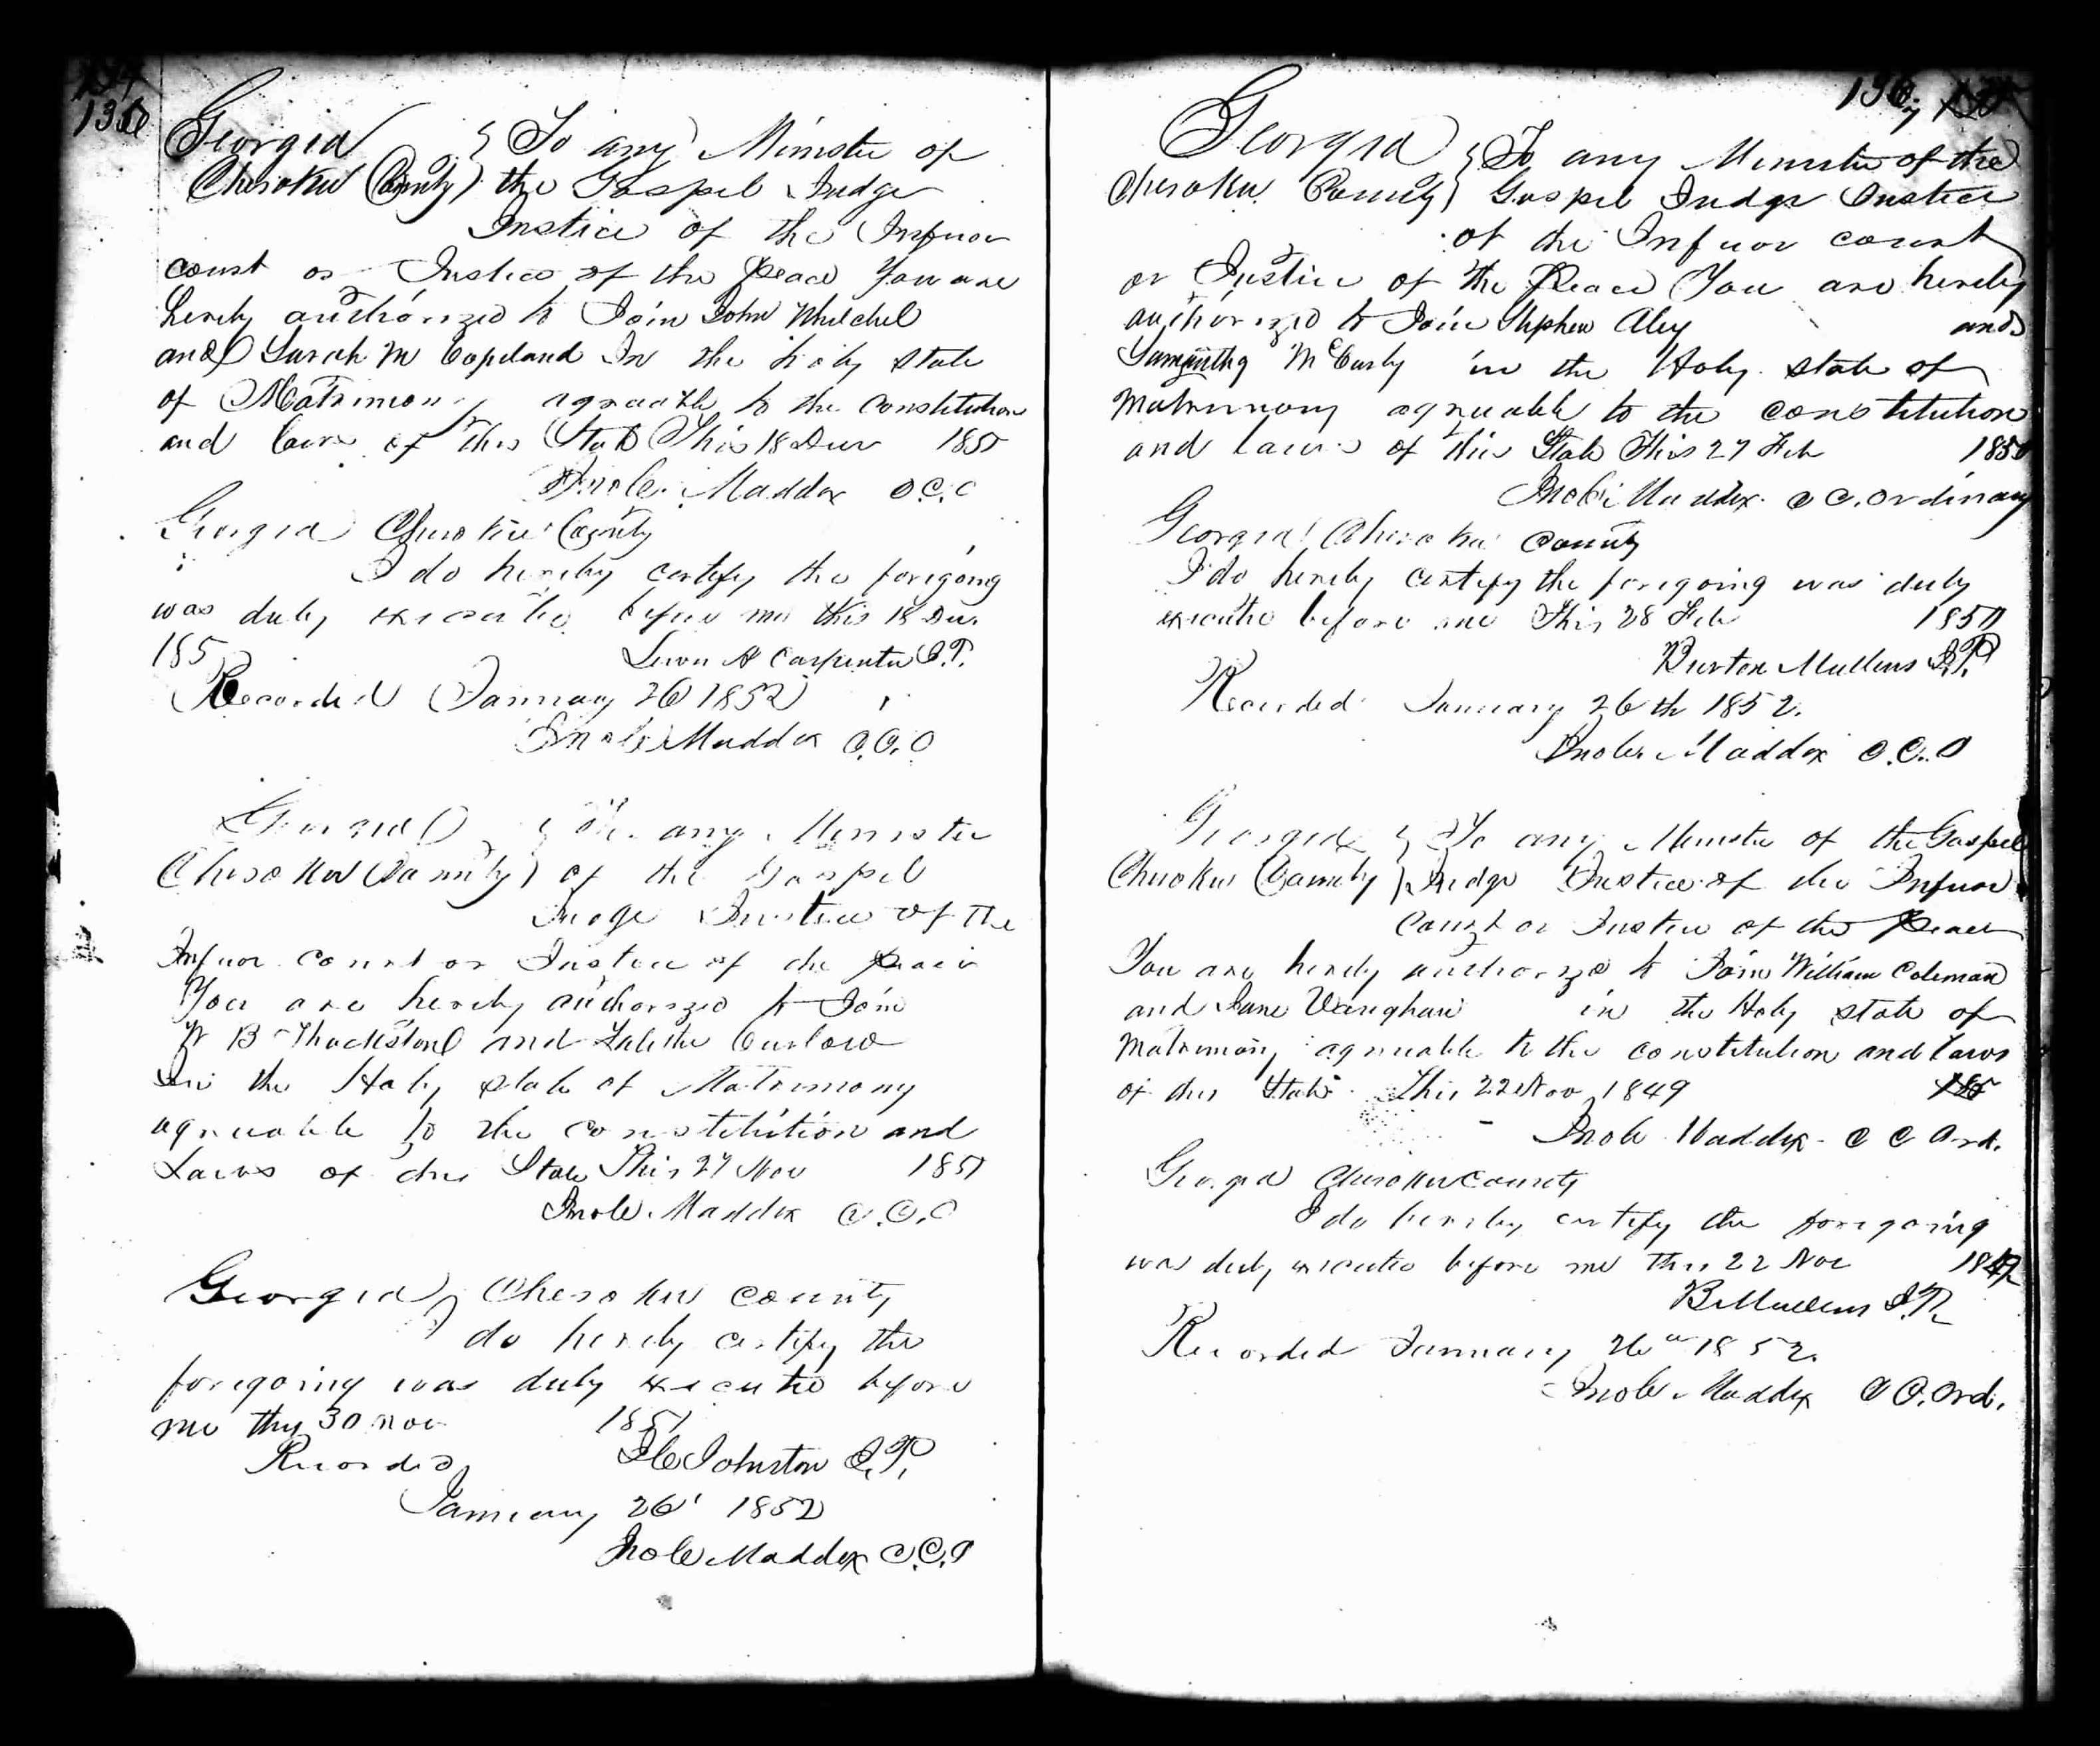 135
Georgia } To any Minister of
Cherokee County } the Gospel Judge
Justice of the Inferior
court or Justice of the Peace You are
hereby authorized to Join John Whelchel
and Sarah M Copeland In the holy state
of Matrimony agreeable to the constitution
and laws of this State This 18 Decr 185
Maddox C.C.O
Georgia Cherokee County
I do hereby certify the foregoing
was duly executed before me this 18 Dec.
185
A Carpenter J.P.
Recorded January 26 1852
Maddox C.C.O
Georgia } To any Minister
Cherokee County } of the Gospel
Judge Justice of the
Inferior court or Justice of the peace
You are hereby authorized to Join
B Thackston and
In the Holy state of Matrimony
agreeable to the constitution and
Laws of this State This 27 Nov 1851
Maddox C.C.O
Georgia, Cherokee County
do hereby certify the
foregoing was duly executed before
me this 30 Nov 1851
Johnston J.P.
Recorded
January 26 1852
Maddox C.C.O
136
Georgia } To any Minister of the
Cherokee County } Gospel Judge Justice
of the Inferior court
or Justice of the Peace You are hereby
authorized to Join Stephen and
McCurly in the Holy state of
Matrimony agreeable to the constitution
and Laws of this State This 27 Feb 185
Maddox C C. Ordinary
Georgia Cherokee County
I do hereby certify the foregoing was duly
executed before me This 28 Feb 185
Burton Mullens J.P.
Recorded January 26th 1852.
Maddox C.C.O
Georgia } To any Minister of the Gospel
Cherokee County } Judge Justice of the Inferior
Court or Justice of the Peace
You are hereby authorized to Join William Coleman
and Jane Vaughan in the Holy state of
Matrimony agreeable to the constitution and Laws
of this State This 22 Nov 1849 185
Maddox C C Ord.
Georgia Cherokee County
I do hereby certify the foregoing
was duly executed before me this 22 Nov 1849
B Mullens J.P.
Recorded January 26th 1852.
Maddox C C. Ord.